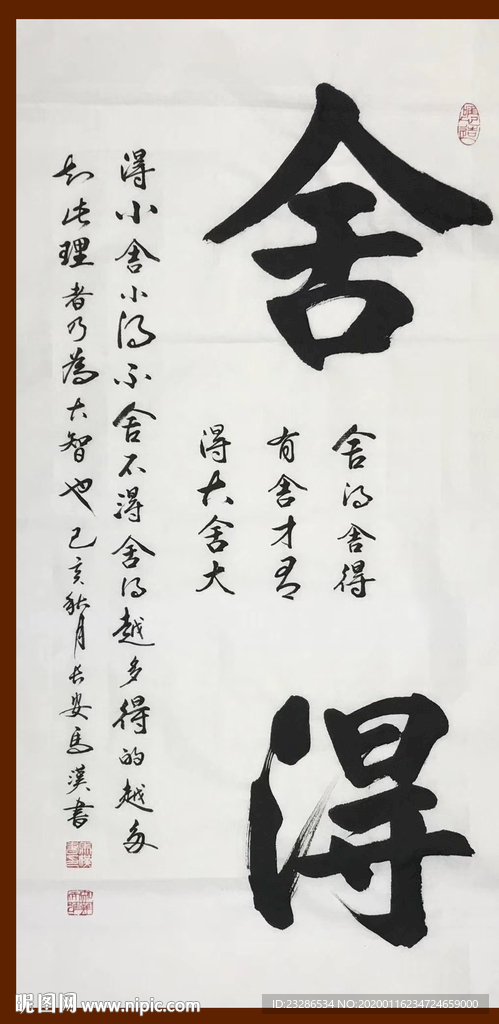 舍得
舍得舍得
有舍才有
得大舍大
得小舍小得不舍不得舍得越多得的越多
知此理者乃為大智也己亥秋月长安馬漢書
昵图网 www.nipic.com
ID:23286534 NO:20200116234724659000